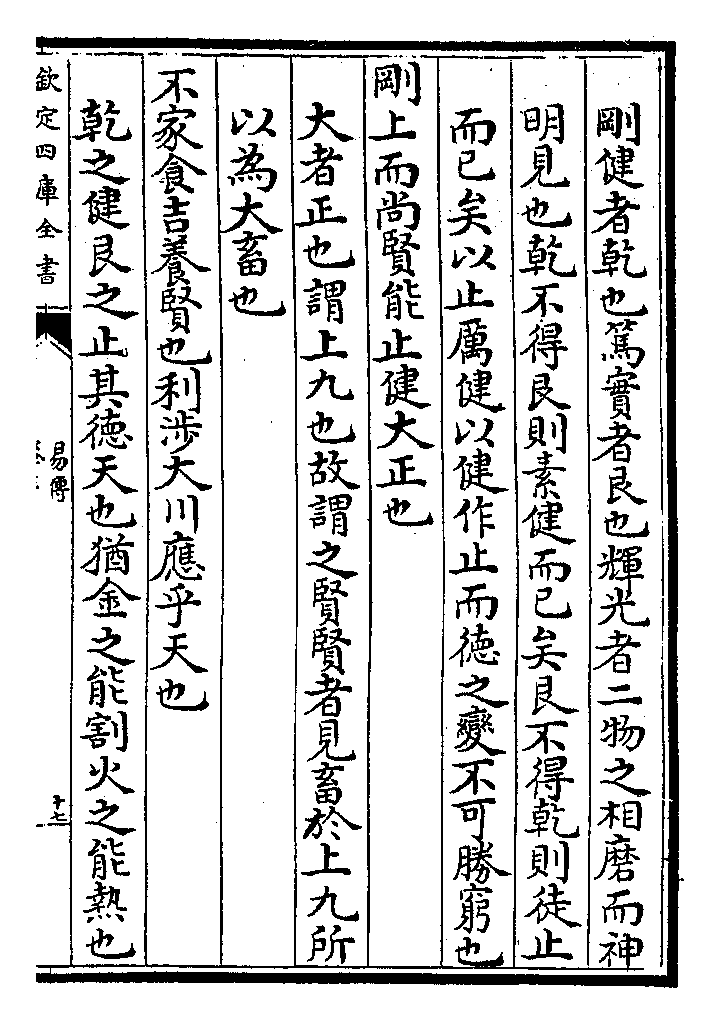 剛健者乾也篤實者艮也輝光者二物之相磨而神
明見也乾不得艮則素健而已矣艮不得乾則徒止
而已矣以止厲健以健作止而徳之變不可勝窮也
剛上而尚賢能止健大正也
大者正也謂上九也故謂之賢賢者見畜於上九所
以為大畜也
不家食吉養賢也利涉大川應乎天也
乾之健艮之止其徳天也猶金之能割火之能熱也
欽定四庫全書
易傳
十七